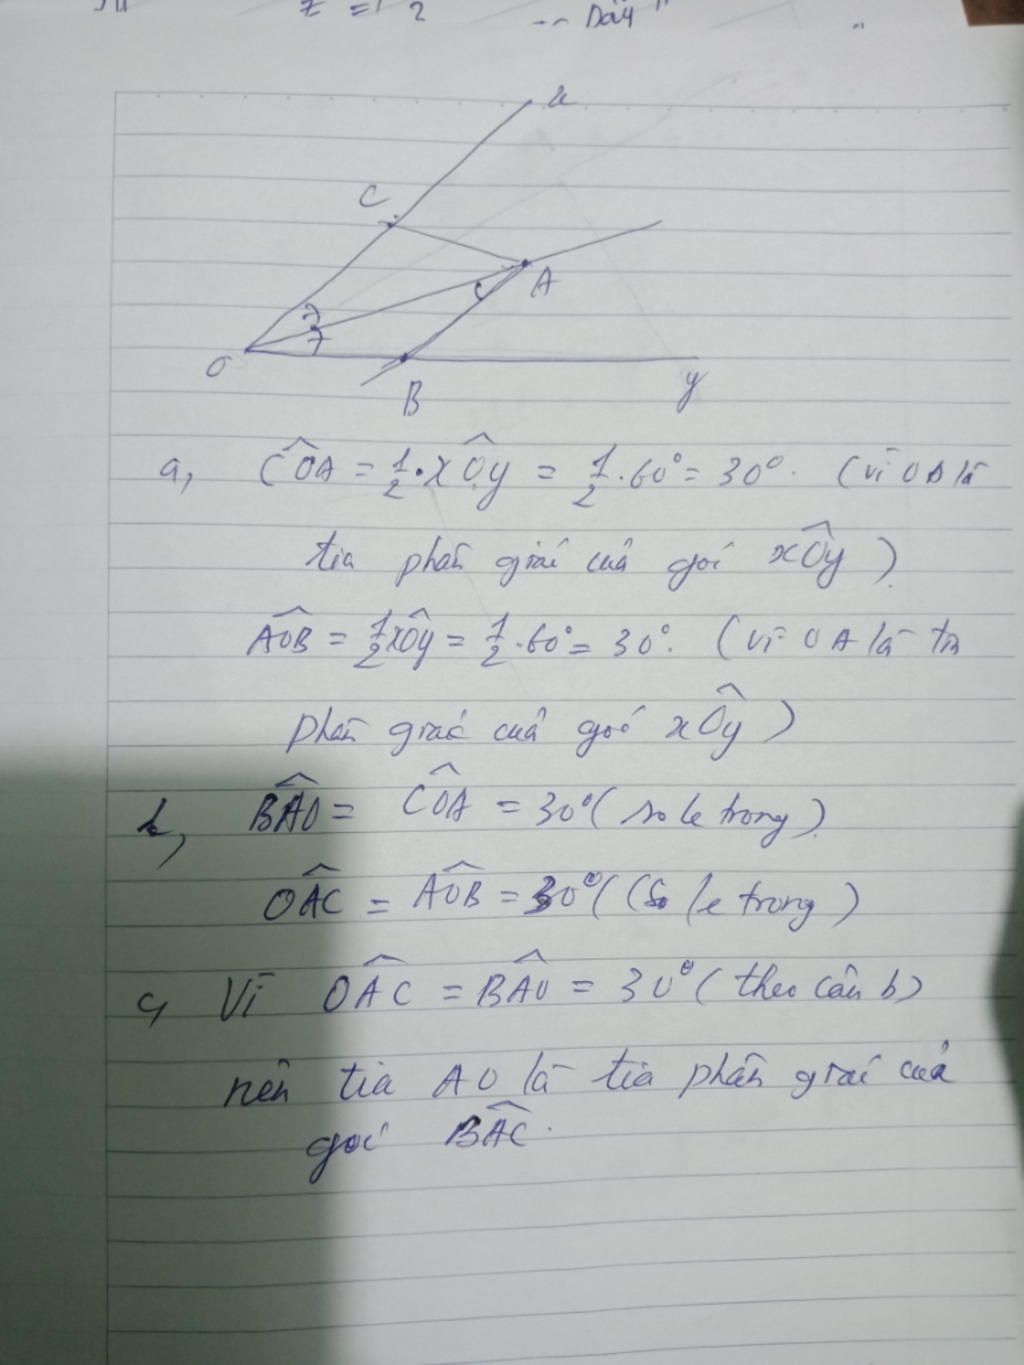 z = 1 2
-- Dãy "
x
C
A
O
B
y
a, CÔA = 1/2 . xÔy = 1/2 . 60° = 30° . (vì OA là
tia phân giác của góc xÔy )
AÔB = 1/2 xÔy = 1/2 . 60° = 30° . (vì OA là tia
phân giác của góc xÔy )
b, BÂO = CÔA = 30° ( so le trong )
OÂC = AÔB = 30° ( (so le trong )
c, Vì OÂC = BÂO = 30° ( theo câu b)
nên tia AO là tia phân giác của
góc BÂC .